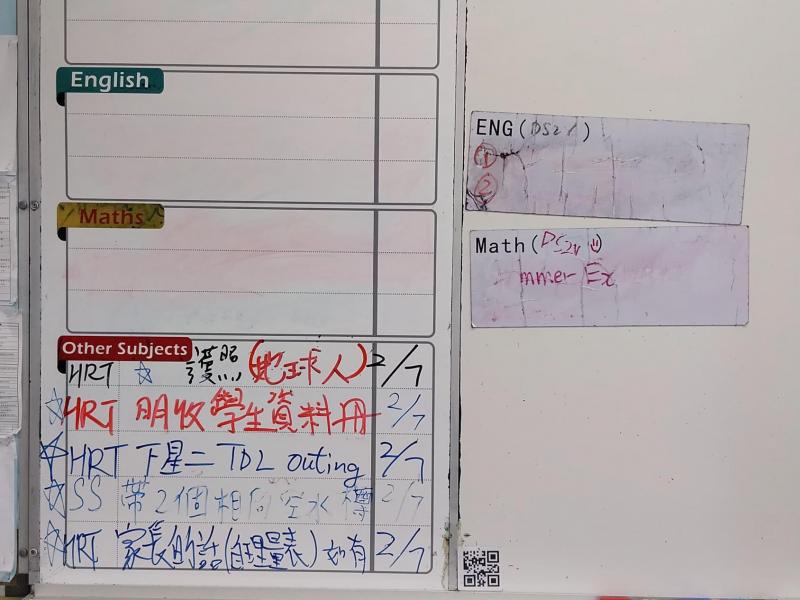 English
Maths
Other Subjects
HRT ☆ 護照 (地球人) 2/7
☆ HRT 明收學生資料冊 2/7
☆ HRT 下星二 TDL outing 2/7
☆ SS 帶2個相同空水樽 2/7
☆ HRT 家長的話(自理量表)如有 2/7
ENG(DS2
①
②
Math(
mmer Ex